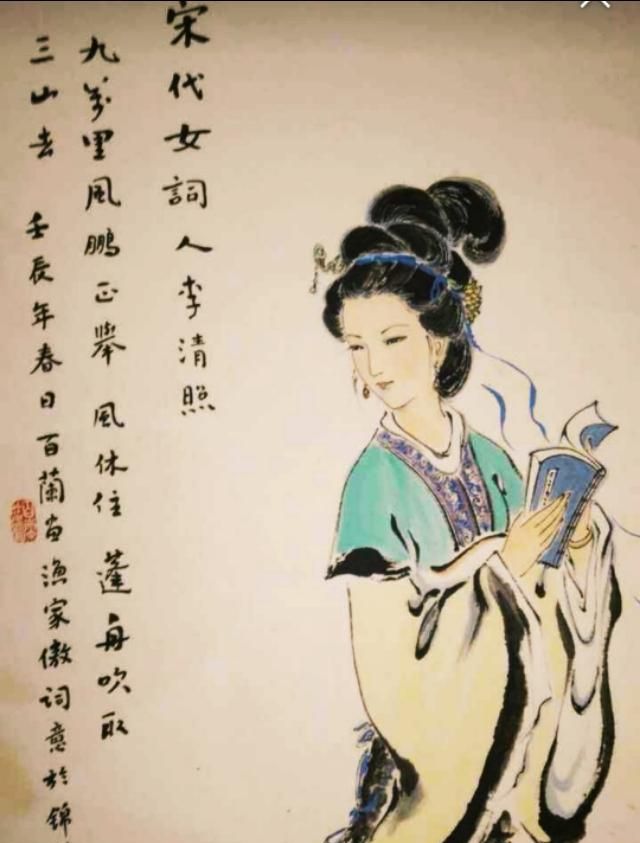 宋代女詞人李清照
九萬里風鵬正舉 風休住 蓬舟吹取
三山去 壬辰年春日百蘭画渔家傲词意於錦